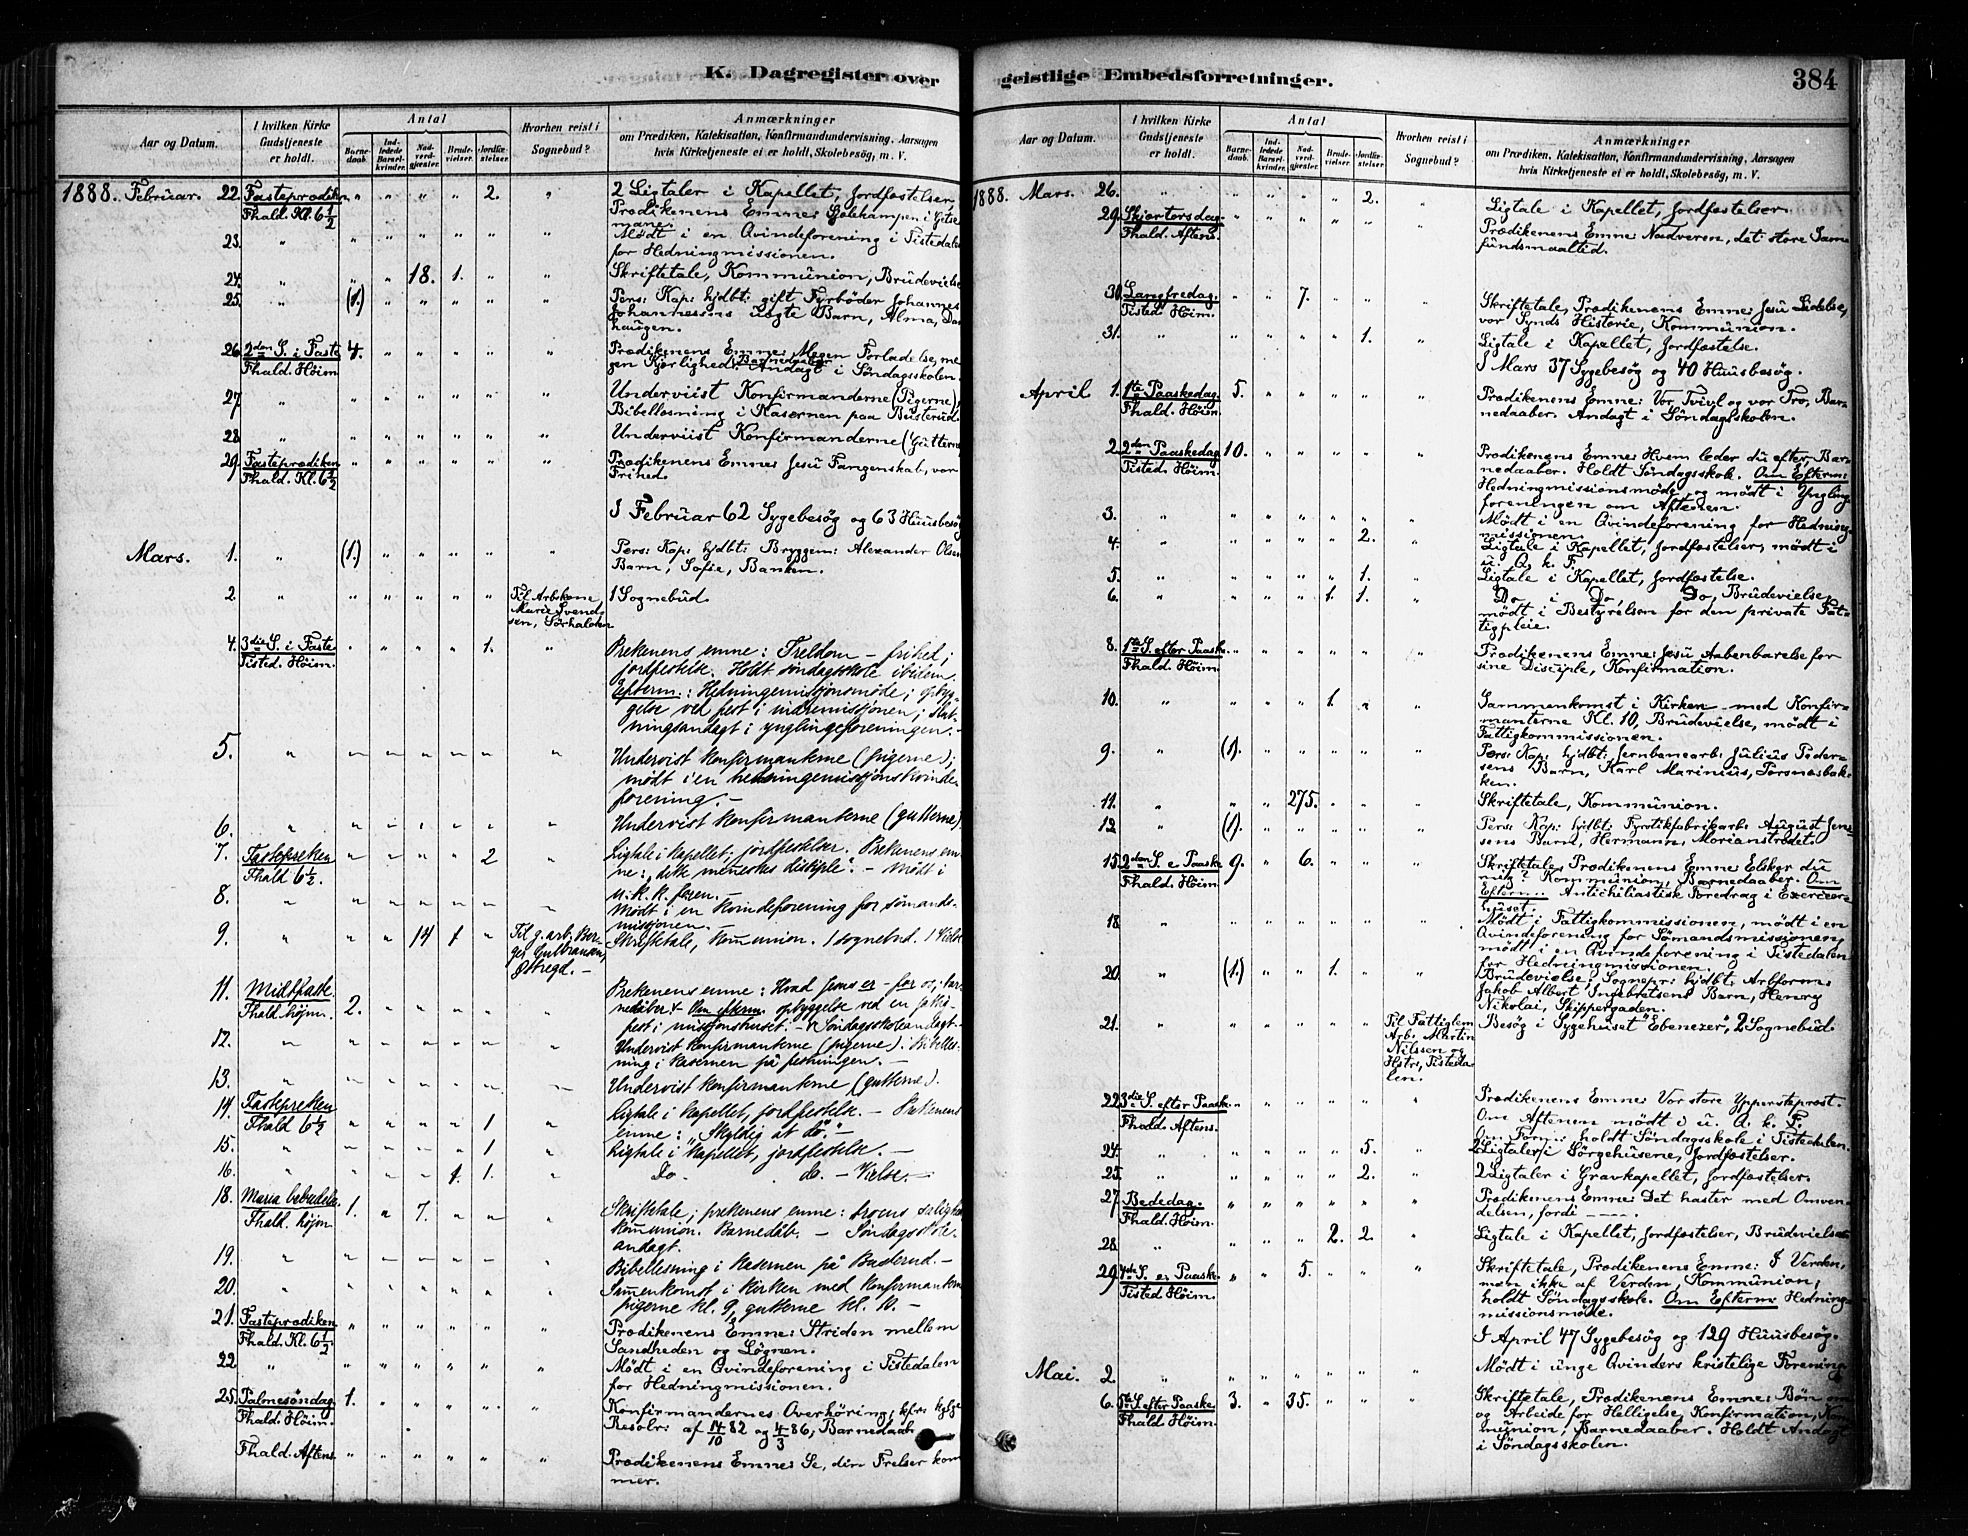 K. Dagregister over
geistlige Embedsforretninger.
384
Aar og Datum.
I hvilken Kirke Gudstjeneste er holdt.
Antal
Barnedaab.
Indledede Barselkvinder.
Nadverdgjester.
Brudevielser.
Jordfæstelser.
Hvorhen reist i Sognebud?
Anmærkninger
om Prædiken, Katekisation, Konfirmandundervisning, Aarsagen
hvis Kirketjeneste ei er holdt, Skolebesøg, m. V.
1888. Februar. 22. Fasteprædiken " " " " 2. " 2 Ligtaler i Kapellet, Jordfæstelser.
Fhald. Kl. 6 1/2 Prædikenens Emne: Sjælekampen i Getse
mane.
23. " " " " " " " Mødt i en Qvindeforening i Tistedalen
for Hedningmissionen.
24. " " " 18. 1. " " Skriftetale, Kommunion, Brudevielse
25. " (1.) " " " " " Pers: Kap: hjdbt: gift Fyrbøder Johannes
Johannessens Barn, Alma,
haugen.
26. 2den S. i Faste 4. " " " " " Prædikenens Emne: Megen Forladelse, me
Fhald. Høim. gen Kjærlighed. Barnedaaber Andagt i Søndagsskolen.
27 " " " " " " " Underviist Konfirmanderne (Pigerne),
Bibellæsning i Kasernen paa Busterud.
28. " " " " " " " Underviist Konfirmanderne (Gutterne
29. Fasteprædiken " " " " " " Prædikenens Emne: Jesu Fangenskab, vor
Fhald. Kl. 6 1/2 Frihed.
I Februar 62 Sygebesøg og 63 Huusbesøg
Mars. 1. " (1.) " " " " " Pers: Kap: hjdbt: Bryggem: Alexander Olsens
Barn, Sofie, Banken.
2 " " " " " " Til Arbskone 1 Sognebud.
Marie Svend-
sen, Sørhalden
4. 3die S. i Faste " " " " 1. " Prekenens emne: Treldom – frihed;
Tisted. Höim. jordfestelse. Holdt söndagsskole ibidem.
Efterm.: Hedningemissjonsmöde; opbyg-
gelse ved fest i indremissjonen; slut-
ningsandagt i ynglingeforeningen. –
5. " Undervist konfirmanterne (pigerne);
mödt i en hedningemissjonskvinde-
forening. –
6. " Undervist konfirmanterne (gutterne)
7. Fastepreken 2 Ligtale i kapellet, jordfestelser. Prekenens em-
Fhald 6 1/2. ne: „dette menneskes disciple". – Mødt i
u. k. k. foren. –
8. " Mödt i en kvindeforening for sömands-
missjonen. –
9. " 14 1 Til g. arb. Bir- Skriftetale, kommunion. 1 sognebud. 1 Vielse
ger Gulbransen,
11. Midtfaste. 2. Prekenens emne: Hvad Jesus er – for os; bar
Fhald höjm. nedåber. + Om efterm. opbyggelse ved en
fest i missjonshuset. – Söndagsskoleandagt. –
12. " Undervist konfirmanterne (pigerne). Bibelles-
ning i kasernen på festningen. –
13. " Undervist konfirmanterne (gutterne).
14. Fastepreken 1 Ligtale i kapellet, jordfestelse. – Prekenens
Fhald 6 1/2 emne: „Skyldig at dö". –
15. " 1 Ligtale i kapellet, jordfestelse. –
16. " 1. 1. Do. do. – Vielse. –
18. Maria bebudelse 1. " 7. Skriftetale; prekenens emne: troens salighed
Fhald. höjm. kommunion. Barnedåb. – Söndagsskole-
andagt.
19. " Bibellesning i kasernen på Busterud. –
20. " Sammenkomst i kirken med konfirmanterne
pigerne kl. 9, gutterne kl. 10. –
21. Fasteprædiken " " " " " " Prædikenens Emne: Striden mellem
Fhald. Kl. 6 1/2. Sandheden og Løgnen.
22 " " " " " " " Mødt i en Qvindeforening i Tistedalen
for Hedningmissionen.
25. Palmesøndag 1. " " " " " Konfirmandernes Overhøring, kfr: kglge
Fhald. Höim. Resolr: af 14/10 82 og 4/3 86, Barnedaab
Fhald. Aftens. " " " " " " Prædikenens Emne: Se, din Frelser kom
mer.
1888. Mars. 26. " " " " " 2. " Ligtale i Kapellet, Jordfæstelser.
29. Skjærtorsdag. " " " " " " Prædikenens Emne: Nadveren, det store Sam
Fhald. Aftens. fundsmaaltid.
30. Langfredag. " " 7. " " " Skriftetale, Prædikenens Emne: Jesu Lidelse,
Tisted. Höim. vor Synds Historie, Kommunion.
31. " " " " " 1. " Ligtale i Kapellet, Jordfæstelse.
I Mars 37 Sygebesøg og 40 Huusbesøg.
April 1. 1ste Paaskedag. 5. " " " " " Prædikenens Emne: Vor Tvivl og vor Tro, Bar-
Fhald. Höim. nedaaber. Andagt i Søndagsskolen.
2. 2den Paaskedag 10. " " " " " Prædikenens Emne: Hvem leder du efter Bar-
Tisted. Höim. nedaaber. Holdt Søndagsskole. Om Efterm:
Hedningmissionsmøde, og mødt i Yngling-
foreningen om Aftenen.
3. " " " " " " " Mødt i en Qvindeforening for Hedning-
missionen.
4. " " " " " 2. " Ligtale i Kapellet, Jordfæstelser, mødt i
u. Q. k. F.
5. " " " " " 1. " Ligtale i Kapellet, Jordfæstelse.
6. " " " " 1. 1. " Do i Do, Do, Brudevielse,
mødt i Bestyrelsen for den private Fat-
tigpleie.
8. 1ste S. efter Paaske. " " " " " " Prædikenens Emne: Jesu Aabenbarelse for
Fhald. Höim. sine Disciple, Konfirmation.
10. " " " " 1. " " Sammenkomst i Kirken med Konfir-
manterne Kl. 10, Brudevielse, mødt i
Fattigkommissionen.
9. " (1). " " " " " Pers: Kap: hjdbt: Jernbanearb: Julius Peder-
sens Barn, Karl Marinius, Torsnesbak-
ken.
11. " " " 275. " " " Skriftetale, Kommunion.
12 " (1). " " " " " Pers: Kap: hjdbt: August Jen-
sens Barn, Hermann,
15. 2den S. e Paaske 9. " 6. " " " Skriftetale, Prædikenens Emne: Elsker du
Fhald. Höim. mig? Kommunion, Barnedaaber. Om
Efterm: Antichiliastisk Foredrag i Exercer-
huset.
18 " " " " " " " Mødt i Fattigkommissionen, mødt i en
Qvindeforening for Sømandsmissionen,
mødt i en Qvindeforening i Tistedalen
for Hedningmissionen.
20. " (1.) " " 1. " " Brudevielse, Sognepr: hjdbt: Arbform:
Jakob Albert Ingebretsens Barn, Henry
Nikolai, Skippergaden.
21. " " " " " " Til Fattiglem Besøg i Sygehuset "Ebenezer", 2 Sognebud.
Arb: Martin
Nilssen og
Hstr:, Tisteda-
len.
22. 3die S. efter Paaske. " " " " " " Prædikenens Emne: Vor store Ypperstepræst.
Fhald. Aftens. Om Aftenen mødt i u. Q. k. F.
Om Form: holdt Søndagsskole i Tistedalen.
24. " " " " " 5. " 2 Ligtaler i Sørgehusene, Jordfæstelser.
25. " " " " " 2. " 2 Ligtaler i Gravkapellet, Jordfæstelser.
27. Bededag. " " " " " " Prædikenens Emne: Det haster med Omven-
Fhald. Höim. delsen, fordi – – – –.
28. " " " " 2. 2. " Ligtale i Kapellet, Jordfæstelser, Brudevielser
29. 4de S. e: Paaske. " " 5. " " " Skriftetale, Prædikenens Emne: I Verden,
Tisted. Höim. men ikke af Verden, Kommunion,
holdt Søndagsskole. Om Efterm: Hedning-
missionsmøde.
I April 47 Sygebesøg og 129 Huusbesøg.
Mai. 2. " " " " " " " Mødt i unge Qvinders kristelige Forening
6. 5te S. efter Paaske 3. " 35. " " " Skriftetale, Prædikenens Emne: Bøn om
Fhald Höim. og Arbeide for Helligelse, Konfirmation, Kom
munion, Barnedaaber. Holdt Andagt
i Søndagsskolen.